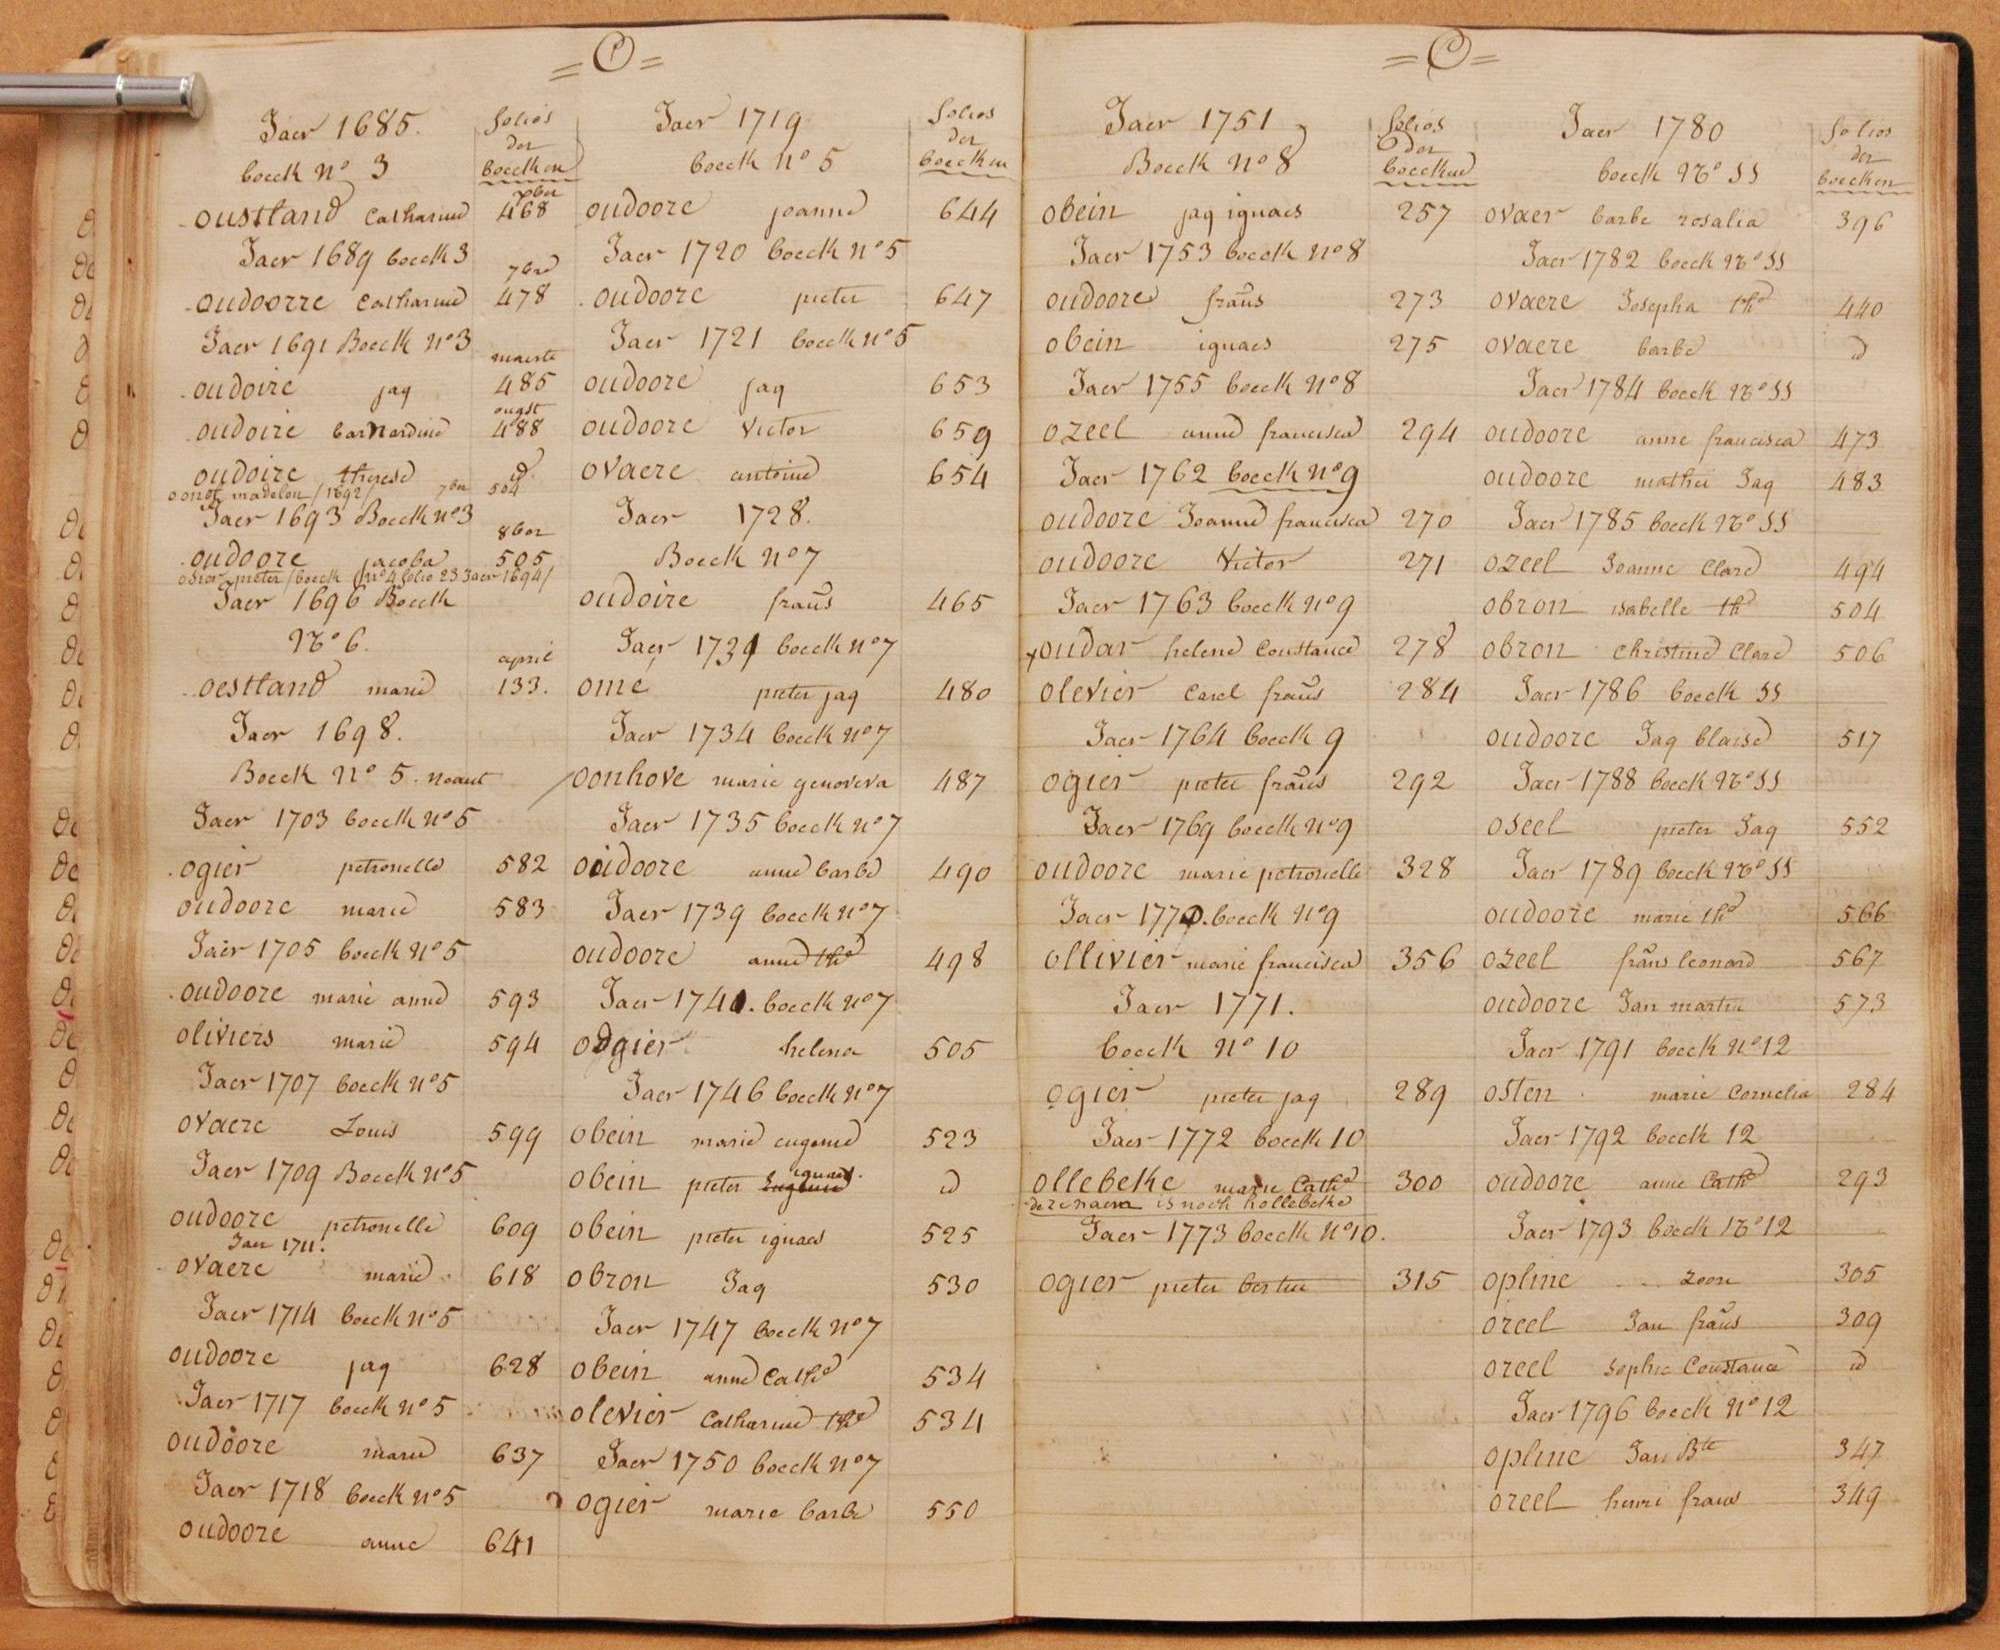 = O =
Jaer 1685.
boeck n° 3
folios
der
boecken
7ber
oustland Catharine 468
Jaer 1689 boeck 3
7bre
oudoorre Catharine 478
Jaer 1691 Boeck n°3
maerte
oudoire jaq 485
ougst
oudoire barnardine 488
oudoire therese d°
oonof madelon /1692/ 7ber 504
Jaer 1693 Boeck n°3
8ber
oudoore jacoba 505
osior pieter /boeck n°4 folio 23 Jaer 1694/
Jaer 1696 Boeck
N° 6.
april
oestland marie 133.
Jaer 1698.
Boeck n° 5. neant
Jaer 1703 boeck n° 5
ogier petronelle 582
oudoore marie 583
Jaer 1705 boeck n° 5
oudoore marie anne 593
oliviers marie 594
Jaer 1707 boeck n° 5
ovaere Louis 599
Jaer 1709 Boeck n° 5
oudoore petronelle 609
Jaer 1711.
ovaere marie 618
Jaer 1714 boeck n° 5
oudoore jaq 628
Jaer 1717 boeck n° 5
oudoore marie 637
Jaer 1718 boeck n° 5
oudoore anne 641
Jaer 1719
boeck n° 5
folios
der
boecken
oudoore joanne 644
Jaer 1720 boeck n° 5
oudoore pieter 647
Jaer 1721 boeck n° 5
oudoore jaq 653
oudoore Victor 659
ovaere antoine 654
Jaer 1728.
Boeck n° 7
oudoire frans 465
Jaer 1731 boeck n° 7
ome pieter jaq 480
Jaer 1734 boeck n° 7
oonhove marie genoveva 487
Jaer 1735 boeck n° 7
oudoore anne barbe 490
Jaer 1739 boeck n° 7
oudoore anne the 498
Jaer 1740. boeck n° 7
odgier helena 505
Jaer 1746 boeck n° 7
obein marie eugenie 523
ignaes.
obein pieter Eugenie id
obein pieter ignaes 525
obron Jaq 530
Jaer 1747 boeck n° 7
obein anne Cathe 534
olevier Catharine the 534
Jaer 1750 boeck n° 7
ogier marie barbe 550
= O =
Jaer 1751
Boeck n° 8
folios
der
boecken
obein jaq ignaes 257
Jaer 1753 boeck n° 8
oudoore frans 273
obein ignaes 275
Jaer 1755 boeck n° 8
ozeel anne francisca 294
Jaer 1762 boeck n° 9
oudoore Joanne francisca 270
oudoore Victor 271
Jaer 1763 boeck n° 9
oudar helene Constance 278
olevier Carel frans 284
Jaer 1764 boeck 9
ogier pieter frans 292
Jaer 1769 boeck n° 9
oudoore marie petronelle 328
Jaer 1770. boeck n° 9
ollivier marie francisca 356
Jaer 1771.
boeck n° 10
ogier pieter jaq 289
Jaer 1772 boeck 10
ollebeke marie Cathe 300
deze naem is noch hollebeke
Jaer 1773 boeck n° 10.
ogier pieter bertin 315
Jaer 1780
boeck N° 11
folios
der
boecken
ovaer barbe rosalia 396
Jaer 1782 boeck N° 11
ovaere Josepha the 440
ovaere barbe id
Jaer 1784 boeck N° 11
oudoore anne francisca 473
oudoore mathieu Jaq 483
Jaer 1785 boeck N° 11
ozeel Joanne Clare 494
obron isabelle the 504
obron Christine Clare 506
Jaer 1786 boeck 11
oudoore Jaq blaise 517
Jaer 1788 boeck N° 11
oseel pieter Jaq 552
Jaer 1789 boeck N° 11
oudoore marie the 566
ozeel frans leonard 567
oudoore Jan martin 573
Jaer 1791 boeck n° 12
osten marie Cornelia 284
Jaer 1792 boeck 12
oudoore anne Cathe 293
Jaer 1793 boeck N° 12
opline zoon 305
oreel Jan frans 309
oreel Sophie Constance id
Jaer 1796 boeck n° 12
opline Jan Bte 347
oreel henri frans 349